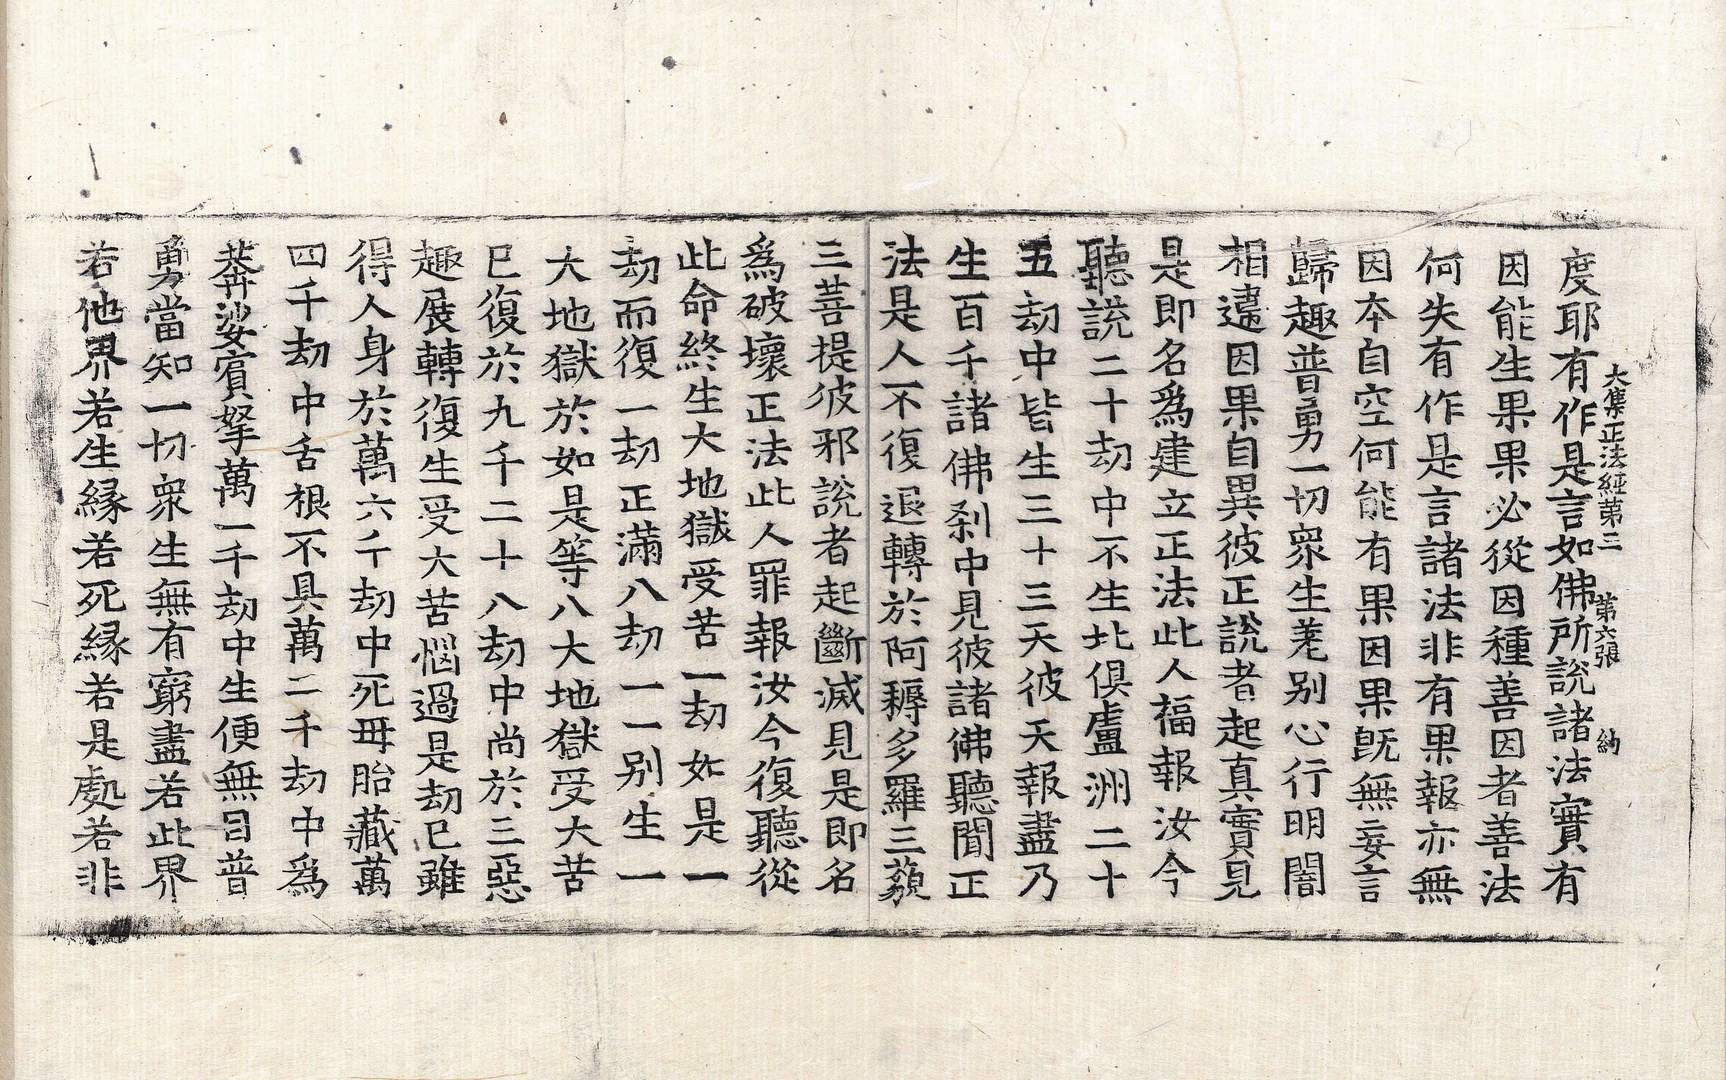 大集正法經第三　第六張　納
度耶有作是言如佛所說諸法實有
因能生果果必從因種善因者善法
何失有作是言諸法非有果報亦無
因本自空何能有果因果旣無妄言
歸趣普勇一切衆生差别心行明闇
相違因果自異彼正說者起真實見
是即名爲建立正法此人福報汝今
聽說二十劫中不生北俱盧洲二十
五劫中皆生三十三天彼天報盡乃
生百千諸佛刹中見彼諸佛聽聞正
法是人不復退轉於阿耨多羅三藐
三菩提彼邪說者起斷滅見是即名
爲破壞正法此人罪報汝今復聽從
此命終生大地獄受苦一劫如是一
劫而復一劫正滿八劫一一别生一
大地獄於如是等八大地獄受大苦
已復於九千二十八劫中尚於三惡
趣展轉復生受大苦惱過是劫已雖
得人身於萬六千劫中死毋胎藏萬
四千劫中舌根不具萬二千劫中爲
萬一千劫中生便無目普
勇當知一切衆生無有窮盡若此界
若他界若生縁若死縁若是處若非